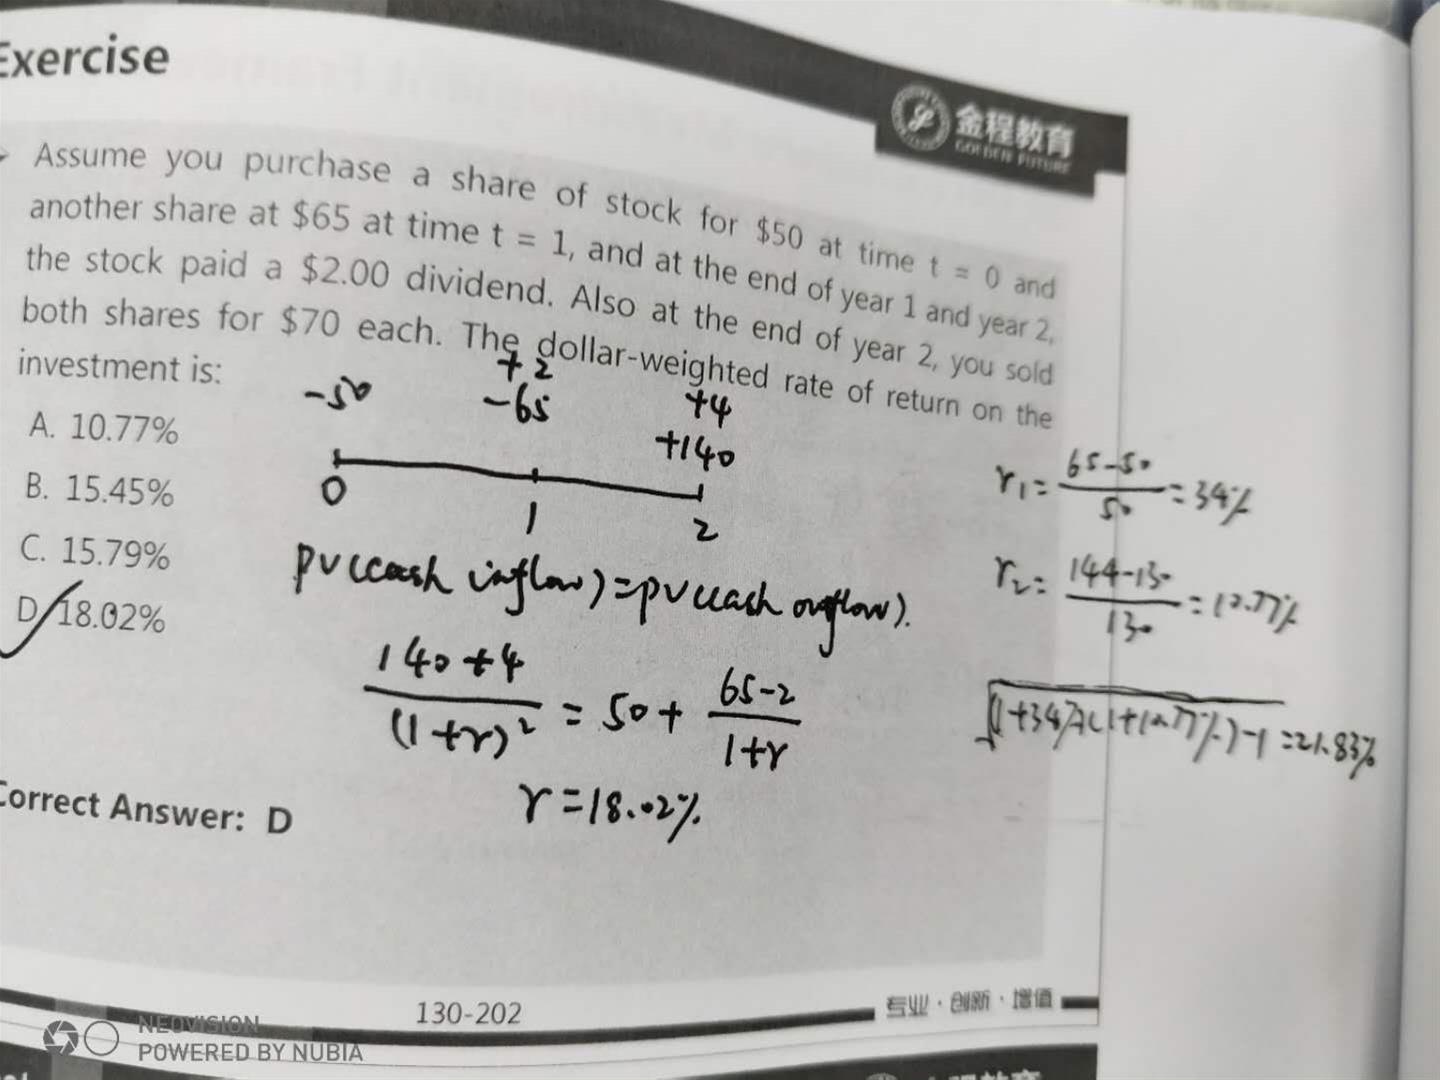 Exercise
金程教育
GOLDEN FUTURE
Assume you purchase a share of stock for $50 at time t = 0 and
another share at $65 at time t = 1, and at the end of year 1 and year 2,
the stock paid a $2.00 dividend. Also at the end of year 2, you sold
both shares for $70 each. The dollar-weighted rate of return on the
investment is:
+2
-50 -65 +4
+140
0 1 2
A. 10.77%
B. 15.45%
C. 15.79%
D. 18.02%
r1= 65-50 / 50 = 34%
r2= 144-130 / 130 = 10.77%
√(1+34%)(1+10.77%) -1 =21.83%
PV(cash inflow)=PV(cash outflow).
140+4 / (1+r)² = 50+ 65-2 / 1+r
r=18.02%
Correct Answer: D
130-202
专业·创新·增值
NEOVISION
POWERED BY NUBIA